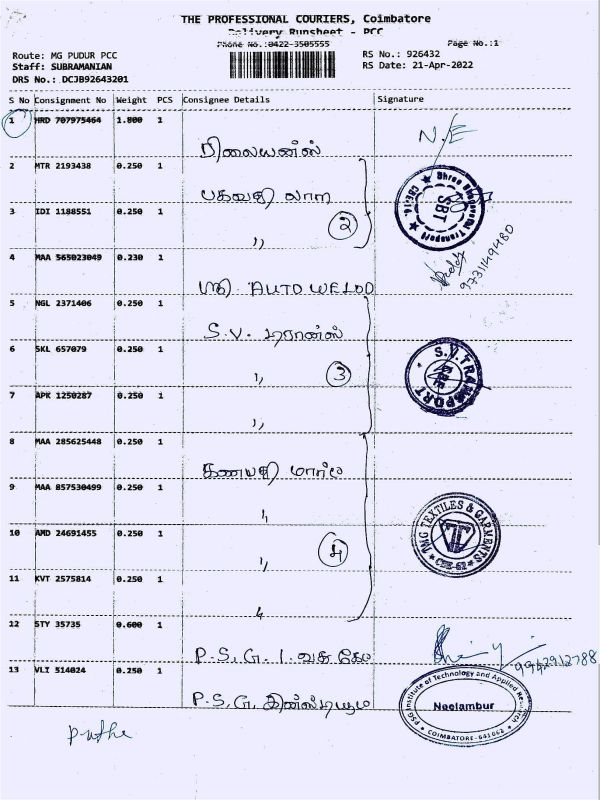 THE PROFESSIONAL COURIERS, Coimbatore
Delivery Runsheet - PCC
Phone No.:0422-3505555 Page No.:1
Route: MG PUDUR PCC RS No.: 926432
Staff: SUBRAMANIAN RS Date: 21-Apr-2022
DRS No.: DCJB92643201
S No Consignment No Weight PCS Consignee Details Signature
1 HRD 707975464 1.800 1
N/E
ரிலையன்ஸ்
2 MTR 2193438 0.250 1
பகவதி
Shree Bhagavathi Transport
SBT
CBE
3 IDI 1188551 0.250 1
,, 2
9731149480
4 MAA 565023049 0.230 1
ஸ்ரீ AUTO WELDD
5 NGL 2371406 0.250 1
S.V. டிரான்ஸ்
6 SKL 657079 0.250 1
,, 3
S.V. TRANSPORT
7 APK 1250287 0.250 1
,,
8 MAA 285625448 0.250 1
கணபதி
9 MAA 857530499 0.250 1
,,
TEXTILES & GARMENTS
CBE-62
10 AMD 24691455 0.250 1
,, 4
11 KVT 2575814 0.250 1
,,
12 STY 35735 0.600 1
P.S.G. I.
9942912788
13 VLI 514024 0.250 1
P.S.G.
PSG Institute of Technology and Applied Research
Neelambur
COIMBATORE-641062